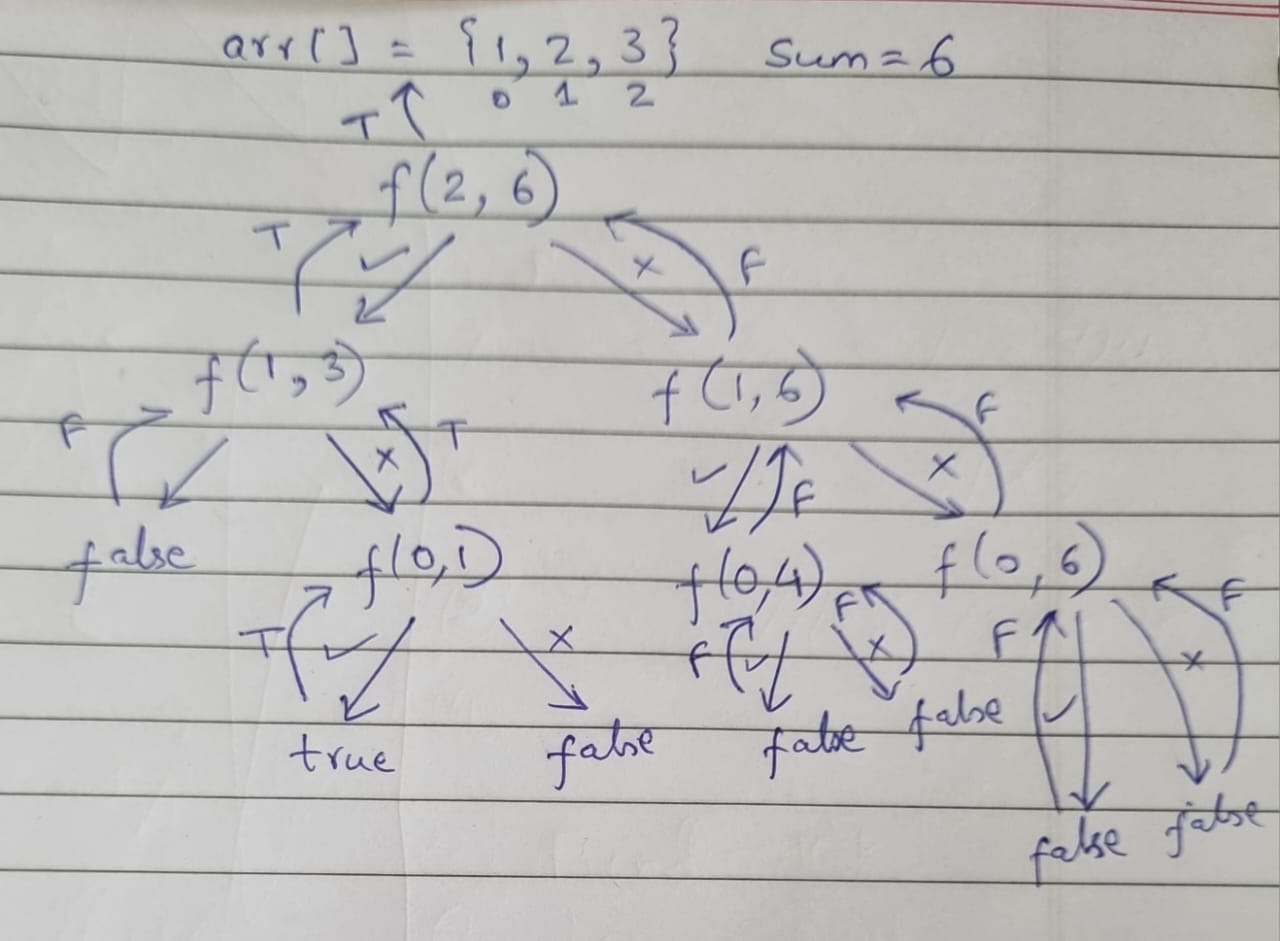 arr[] = {1, 2, 3} Sum = 6
0 1 2
T
f(2, 6)
T ✓ x F
f(1, 3) f(1, 6)
F x T ✓ F x F
false f(0, 1) f(0, 4) f(0, 6)
T ✓ x F ✓ F x F ✓ x F
true false false false false false